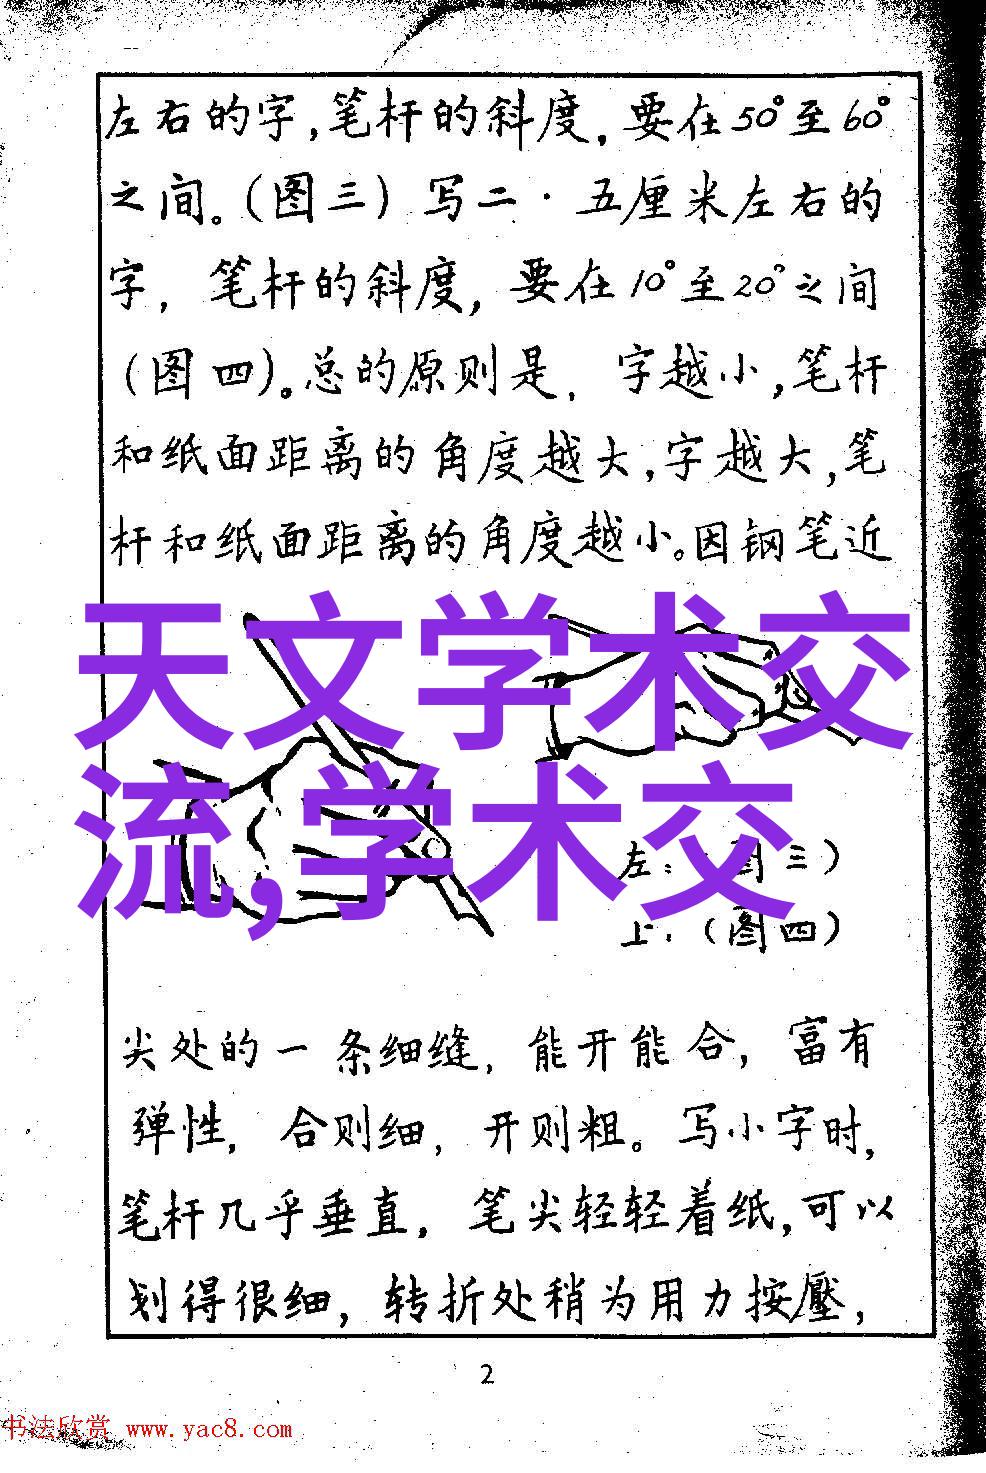 左右的字,笔杆的斜度,要在50°至60°
之间。(图三)写二·五厘米左右的
字,笔杆的斜度,要在10°至20°之间
(图四)。总的原则是,字越小,笔杆
和纸面距离的角度越大,字越大,笔
杆和纸面距离的角度越小。因钢笔近
天文学术交
流,学术交
左:(图三)
上:(图四)
尖处的一条细缝,能开能合,富有
弹性,合则细,开则粗。写小字时,
笔杆几乎垂直,笔尖轻轻着纸,可以
划得很细,转折处稍为用力按壓,
2
书法欣赏 www.yac8.com